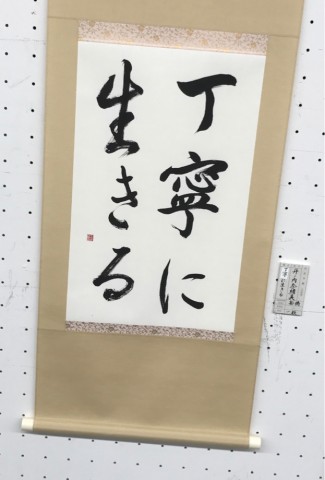 丁寧に
生きる